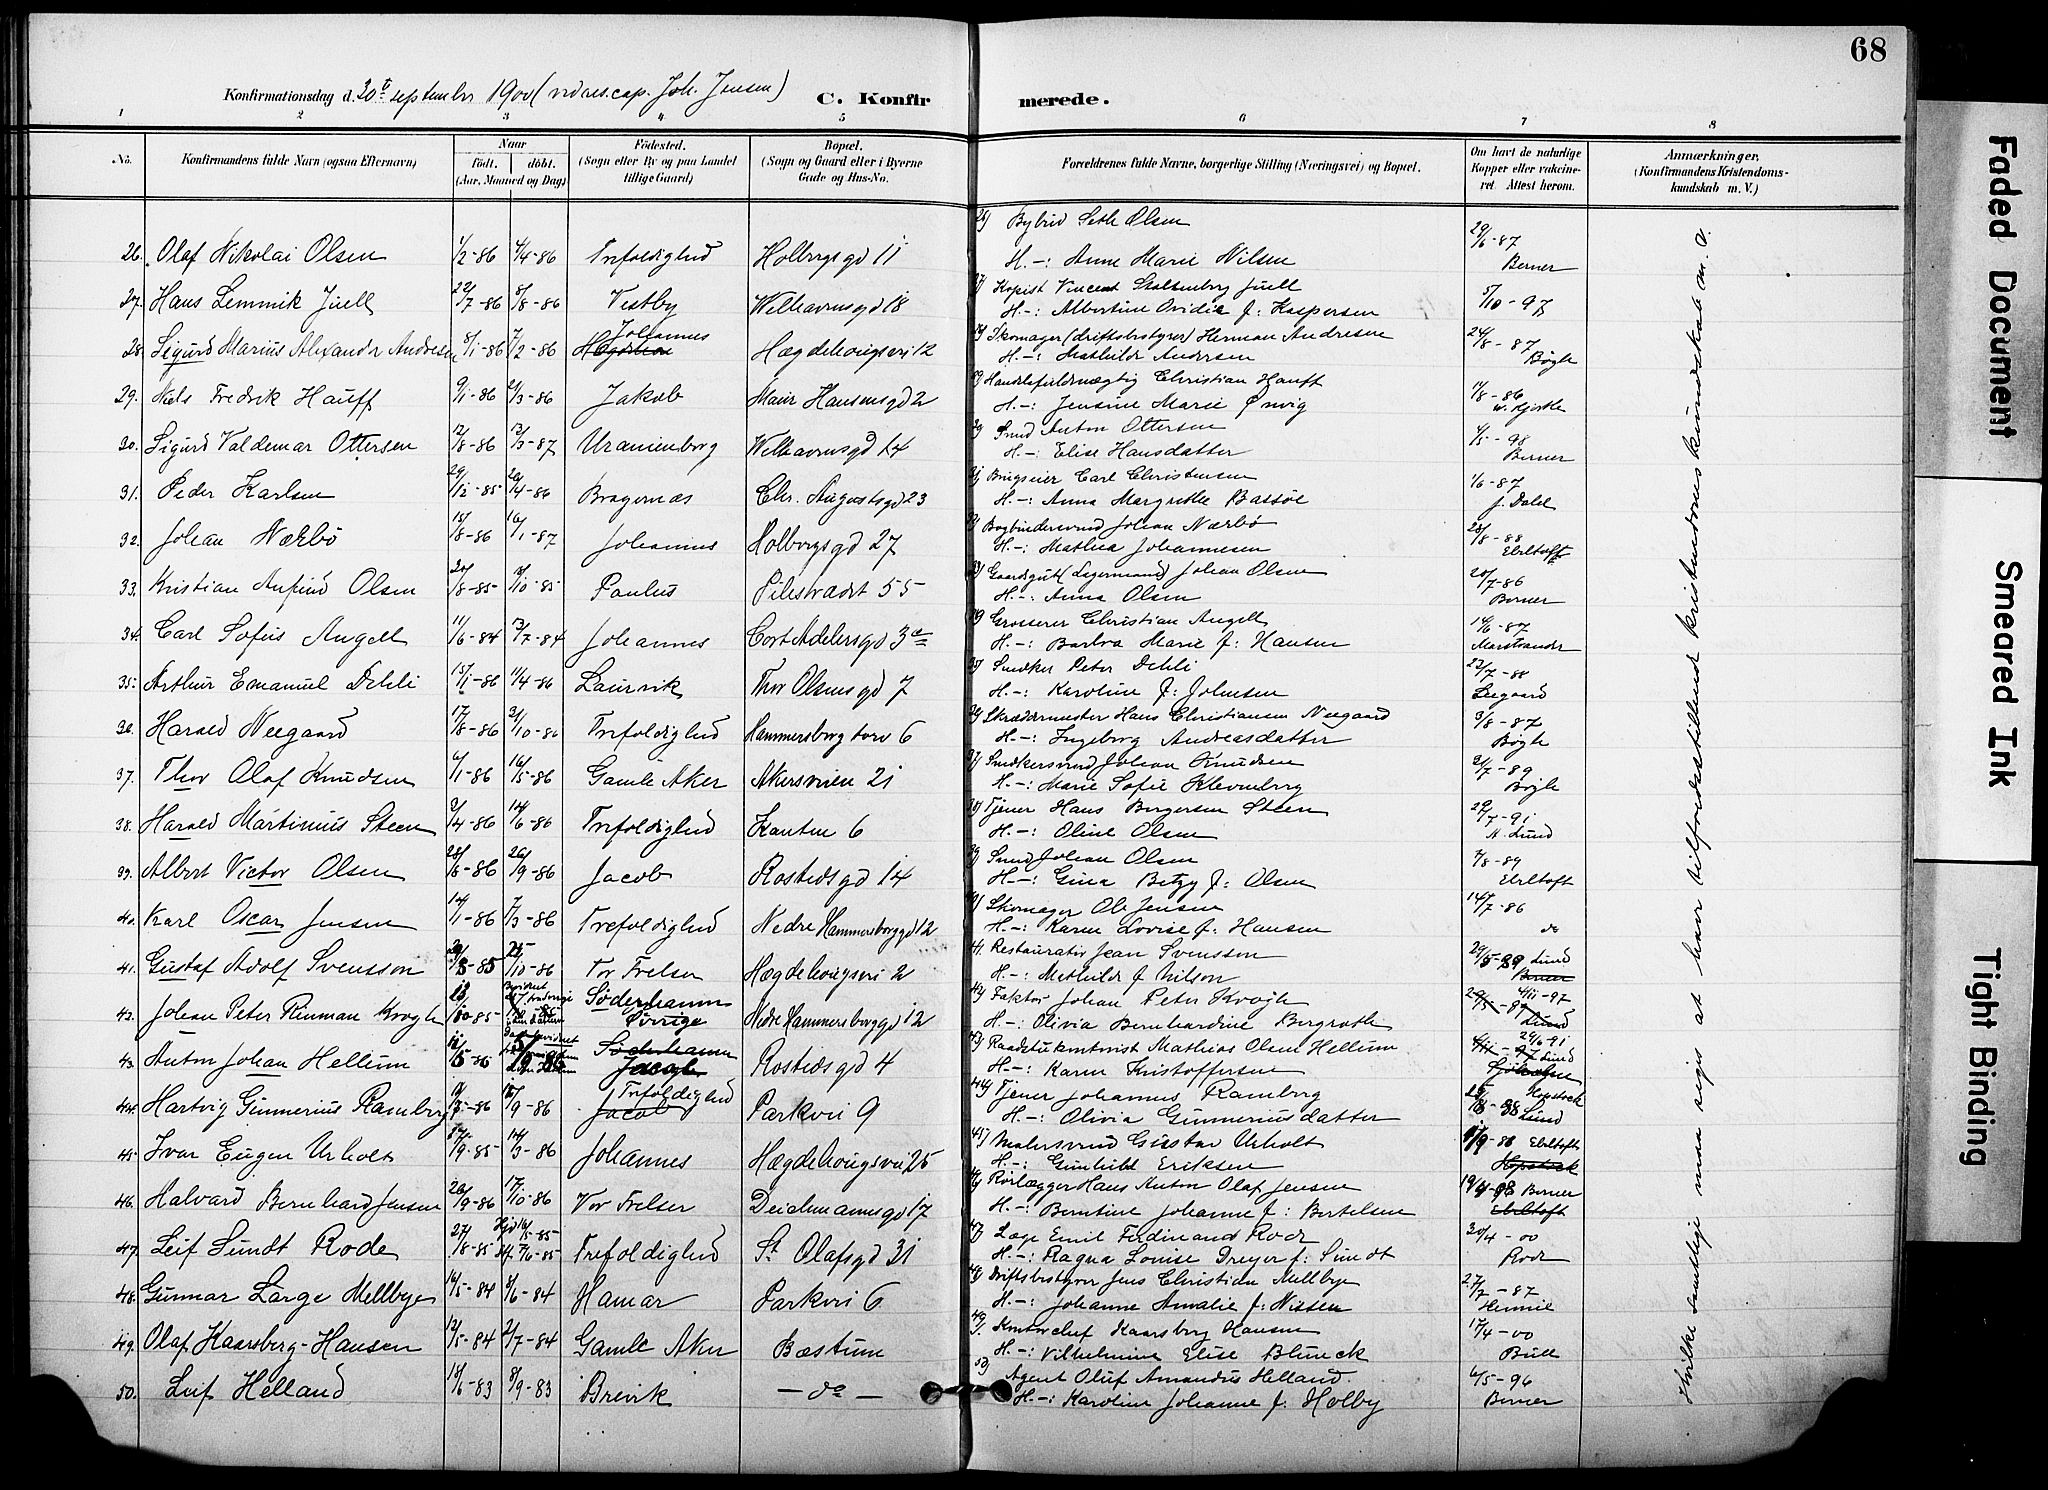 68
Konfirmationsdag d. 30te september 1900 (ved res. cap. Joh. Jensen) C. Konfirmerede.
1 2 3 4 5 6 7 8
No. Konfirmandens fulde Navn (ogsaa Efternavn) Naar født. døbt. (Aar, Maaned og Dag) Fødested. (Sogn eller By og paa Landet tillige Gaard) Bopæl. (Sogn og Gaard eller i Byerne Gade og Hus-No. Forældrenes fulde Navne, borgerlige Stilling (Næringsvei) og Bopæl. Om havt de naturlige Kopper eller vakcineret. Attest herom. Anmærkninger. (Konfirmandens Kristendomskundskab m. V.)
26. Olaf Nikolai Olsen 1/2-86 4/4-86 Trefoldighed Holbergsgd 11 26) Bybud Seth Olsen 29/6-87
H.-: Anne Marie Nilsen Berner
27. Hans Lemmik Juell 22/7-86 8/8-86 Vestby Welhavensgd 18 27) Kopist Vincent Stoltenberg Juell 5/10-97
H.-: Albertine Ovidia f: Kaspersen
28. Sigurd Marius Alexander Andresen 5/1-86 7/2-86 Johannes Hægdehougsvei 12 28) Skomager (driftsbestyrer) Herman Andresen 24/8-87
H.-: Mathilde Andersen Bøgh
29. Niels Fredrik Hauff 9/1-86 21/3-86 Jakob Maier Hansensgd 2 29) Handelsfuldmægtig Christian Hauff 14/8-86
H.-: Jensine Marie Ønvig
30. Sigurd Valdemar Ottersen 12/8-86 13/3-87 Uranienborg Welhavensgd 14 30) Smed Anton Ottersen 4/5-98
H.-: Elise Hansdatter Berner
31. Peder Karlsen 29/12-85 26/4-86 Bragernæs Chr. Augustsgd 23 31) Brugseier Carl Christensen 1/6-87
H.-: Anna Margrethe Bassøe J. Dahl
32. Johan Nærbö 15/8-86 16/1-87 Johannes Holbergsgd 27 32) Bogbindersvend Johan Nærbö 28/8-88
H.-: Mathea Johannesen Ebeltoft
33. Kristian Anfind Olsen 20/8-85 3/10-85 Paulus Pilestrædet 55 33) Gaardsgut (Lagermand) Johan Olsen 20/7-86
H.-: Anna Olsen Berner
34. Carl Sofus Angell 11/6-84 13/7-84 Johannes Cort Adelersgd 3a 34) Grosserer Christian Angell 14/6-87
H.-: Barbra Marie f: Hansen Marstrander
35. Arthur Emanuel Dehli 15/1-86 11/4-86 Laurvik Thor Olsensgd 7 35) Snedker Peter Dehli 23/7-88
H.-: Karoline f: Johnsen Seegaard
36. Harald Neegaard 17/8-86 31/10-86 Trefoldighed Hammersborg torv 6 36) Skræddermester Hans Christiansen Neegaard 3/8-87
H.-: Ingeborg Andreasdatter Bøgh
37. Thor Olaf Knudsen 6/1-86 16/5-86 Gamle Aker Akersveien 21 37) Snedkersvend Johan Knudsen 2/7-89
H.-: Marie Sofie Klevenberg Bøgh
38. Harald Martinius Steen 2/4-86 14/6-86 Trefoldighed Kanten 6 38) Tjener Hans Borgersen Steen 29/7-91
H.-: Oline Olsen N. Lund
39. Albert Victor Olsen 28/8-86 26/9-86 Jacob Rostedsgd 14 39) Smed Johan Olsen 7/8-89
H.-: Gina Betzy f: Olsen Ebeltoft
40. Karl Oscar Jensen 14/1-86 7/3-86 Trefoldighed Nedre Hammersborggd 12 40) Skomager Ole Jensen 14/7-86
H.-: Karen Lovise f: Hansen do
41. Gustaf Adolf Svensson 29/3-85 25/10-86 Vor Frelser Hægdehougsvei 2 41. Restauratør Jean Svensson 29/5-89 Lund
H.-: Methilde f Nilson Berner
42. Johan Peter Rinman Krogh 13/10-85 Söderhamn Sverige Nedre Hammersborggd 12 42) Faktor Johan Peter Krogh 4/11-97
H.-: Olivia Bernhardine Bergroth Lund
43. Anton Johan Hellum 12/5-86 5/9-86 Söderhamn Jacob Rostedsgd 4 43) Raadstukontorist Mathias Olsen Hellum 24/6-91 Lund
H.-: Karen Kristoffersen
44. Hartvig Gunnerius Ramberg 9/7-86 12/9-86 Trefoldighed Jacob Parkvei 9 44) Tjener Johannes Ramberg Hopstock
H.-: Olivia Gunneriusdatter Lund
45. Ivar Eugen Urholt 17/9-85 14/3-86 Johannes Hægdehougsvei 25 45) Malersvend Gustav Urholt 1/9-86 Ebeltoft
H.-: Gunhild Eriksen Hopstock
46. Halvard Bernhard Jensen 20/9-86 17/10-86 Vor Frelser Deichmannsgd 17 46) Rörlægger Hans Anton Olaf Jensen 19/4-98 Berner
H.-: Berntine Johanne f: Bertelsen Ebeltoft
47. Leif Sundt Rode 27/8-85 Trefoldighed St. Olafsgd 31 47) Læge Emil Ferdinand Rode 30/4-00
H.-: Ragna Louise Dreyer f: Sundt Rode
48. Gunnar Lange Mellbye 16/5-84 8/6-84 Hamar Parkvei 6 48) Driftsbestyrer Jens Christian Mellbye 27/7-87
H.-: Johanne Amalie f: Nissen
49. Olaf Kaarsberg-Hansen 12/5-84 2/7-84 Gamle Aker Bæstum 49) Kontorchef Kaarsberg Hansen 17/4-00
H.-: Vilhelmine Elise Blunck Bull
50. Leif Helland 18/6-83 8/9-83 Brevik -do- 50) Agent Oluf Amandus Helland 6/5-96
H.-: Karoline Johanne f: Holby Berner
Hvilke samtlige maa siges at have tilfredsstillende kristendomskundskab m. v.
Faded Document
Smeared Ink
Tight Binding